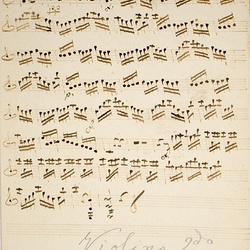 Violino 2do